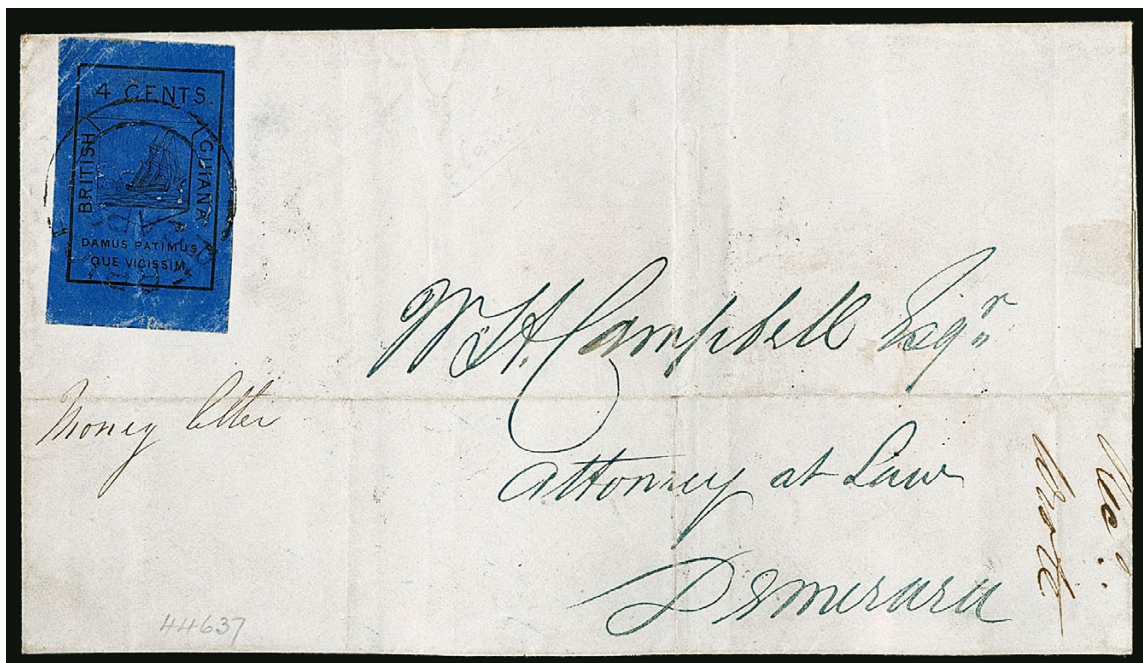 4 CENTS.
BRITISH
GUIANA
DAMUS PATIMUS
QUE VICISSIM.
W. H. Campbell Esqr
Money letter
Attorney at Law
Demerara
44637